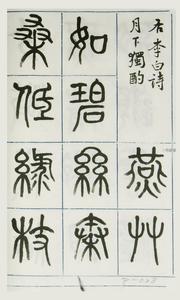 右李白詩
月下獨酌
燕艸
如碧絲秦
桑低綠枝